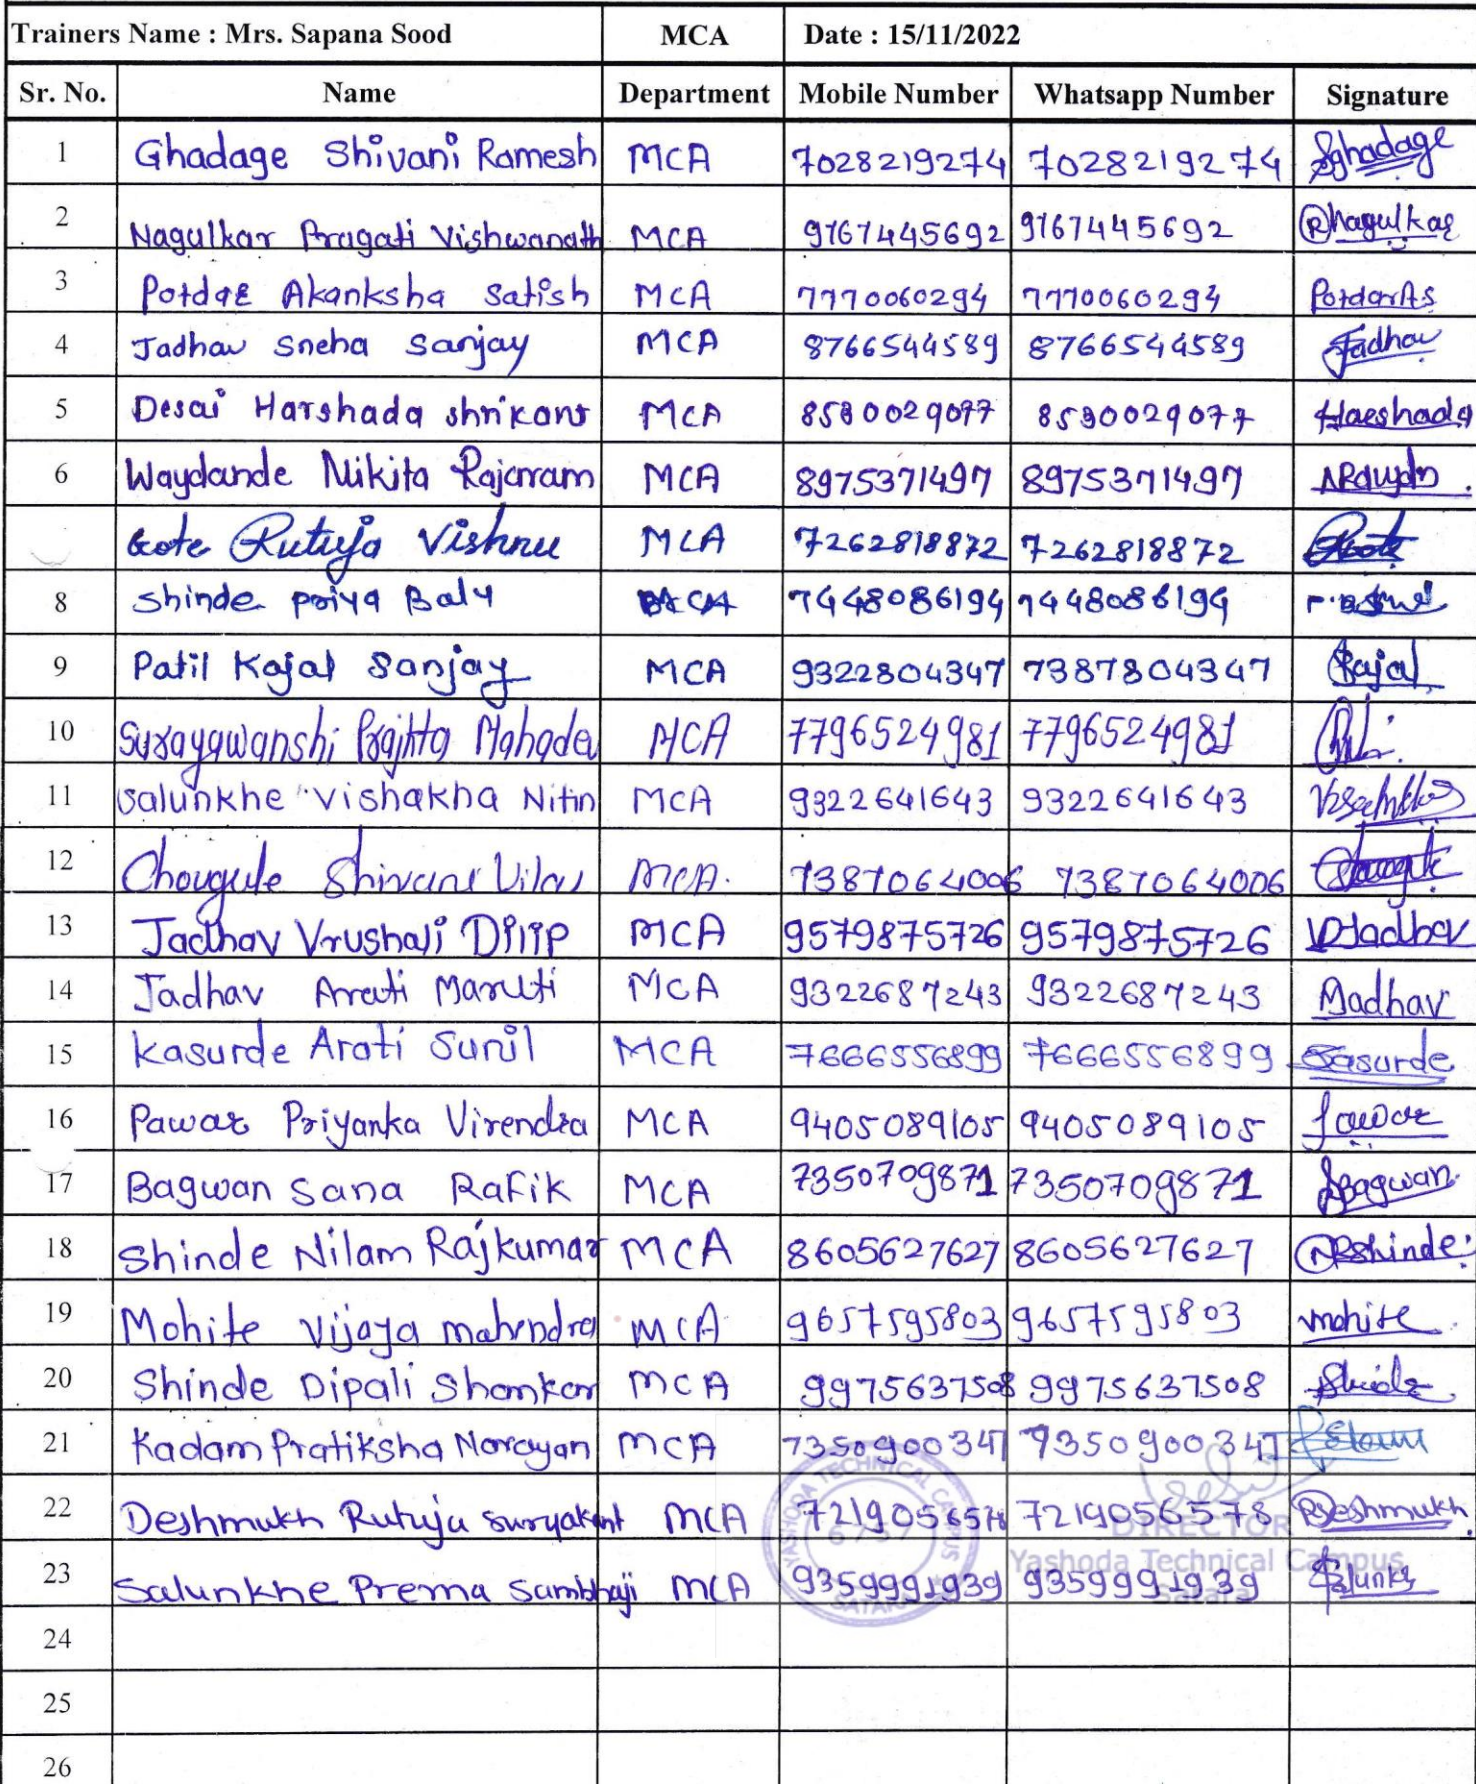 Trainers Name : Mrs. Sapana Sood MCA Date : 15/11/2022
Sr. No. Name Department Mobile Number Whatsapp Number Signature
1 Ghadage Shivani Ramesh MCA 7028219274 7028219274 Sghadage
2 Nagulkar Pragati Vishwanath MCA 9767445692 9767445692 Pnagulkar
3 Potdar Akanksha Satish MCA 7770060294 7770060294 PotdarAs
4 Jadhav Sneha Sanjay MCA 8766544589 8766544589 Jadhav
5 Desai Harshada shrikant MCA 8530029077 8530029077 Harshada
6 Waydande Nikita Rajaram MCA 8975371497 8975371497
Gote Rutuja Vishnu MCA 7262818872 7262818872
8 Shinde Priya Balu MCA 7448086194 7448086194
9 Patil Kajal Sanjay MCA 9322804347 7387804347 Kajal
10 Surayawanshi Prajkta Mahadev MCA 7796524981 7796524981
11 Salunkhe Vishakha Nitin MCA 9322641643 9322641643
12 Chougule Shivani Vilas MCA. 7387064006 7387064006
13 Jadhav Vrushali Dilip MCA 9579875726 9579875726 VDJadhav
14 Jadhav Arati Maruti MCA 9322687243 9322687243 AJadhav
15 Kasurde Arati Sunil MCA 7666556899 7666556899 Kasurde
16 Pawar Priyanka Virendra MCA 9405089105 9405089105 Pawar
17 Bagwan Sana Rafik MCA 7350709871 7350709871 SBagwan
18 Shinde Nilam Rajkumar MCA 8605627627 8605627627 NRShinde
19 Mohite Vijaya mahendra MCA 9657595803 9657595803 mohite
20 Shinde Dipali Shankar MCA 9975637508 9975637508 Shinde
21 Kadam Pratiksha Narayan MCA 7350900347 7350900347
22 Deshmukh Rutuja Suryakant MCA 7219056578 7219056578 RSDeshmukh
DIRECTOR
Yashoda Technical Campus
Satara
YASHODA TECHNICAL CAMPUS
SATARA
23 Salunkhe Prema Sambhaji MCA 9359991939 9359991939 Salunkhe
24
25
26